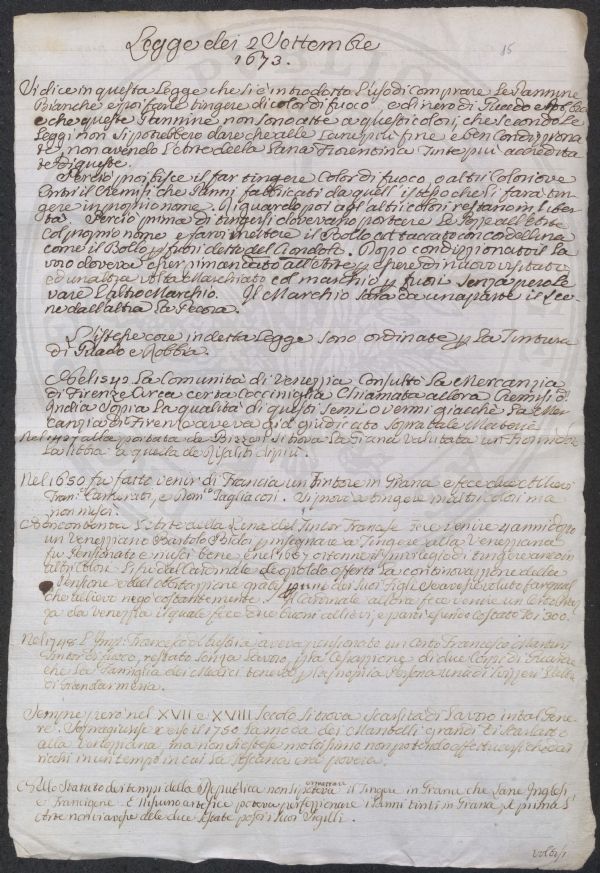 Legge dei 2 Settembre
1673.
15
Si dice in questa Legge che si è introdotto l'uso di comprare le Pannine
Bianche e poi farle tingere di color di fuoco, o di nero di Guado e Robbia
e che queste Pannine non sono atte a questi colori, che secondo le
Leggi non si potrebbero dare che alle Lane più fine e ben condizziona
te, non avendo l'Arte della Lana Fiorentina Tinte più accredita
te di queste.
Perciò proibisce il far tingere Color di fuoco, o altri Colori ove
entri il Cremisi che Panni fabbricati da quell'istesso che li farà tin
gere in proprio nome. Riguardo poi agl'altri colori restano in liber
tà. Perciò prima di tingersi dovevano portare le Pezze all'Arte
col proprio nome e farvi mettere il Bollo attaccato con cordellina
come il Bollo p fuori detto del Ciondolo. Doppo condizzionato il la
voro doveva esser rimandato all'Arte p essere di nuovo visitato
ed un'altra volta Marchiato col marchio p fuori senza però le
vare l'altro Marchio. Il Marchio sarà da una parte il
dall'altra la Pecora.
L'istesse cose in detta Legge sono ordinate p la Tintura
di Guado e Robbia.
Nel 1542 la Comunità di Venezzia Consultò la Mercanzia
di Firenze circa certa Cocciniglia Chiamata allora Cremisi d'
India sopra la qualità di questi semi o vermi giacchè la Mer
canzia di Firenze aveva già giudicato sopra tale
Nel 1427 alla portata de si trova la Grana valutata un Fiorino
la libbra e quella de di più.
Nel 1650 fu fatto venir di Francia un Tintore in Grana e fece due Allievi
Fran. e Dom. Tagliaconi. Si provò a tingere in altri colori ma
non riuscì.
Non contenta l'Arte della Lana del Tintor Franzese fece venire 4 anni doppo
un Venezziano Bartolo p insegnare a Tingere alla Venezziana
fu Pensionato e riuscì bene, e nel 1667 ottenne il privilegio di tingere anco in
altri colori. Li fu dal Cardinale Leopoldo offerto la continovazzione della
Pensione e dell'abitazzione gratis p uno dei suoi Figli se avesse voluto far qual
che allievo negò costantemente. Il Cardinale allora fece venire un
ga da Venezzia il quale fece due buoni allievi, e partì essendo costato 300.
Nel 1748 l'Imp. Francesco aveva pensionato un certo Francesco Martini
Tintor di fuoco, restato senza lavoro, p la Cessazzione di due Corpi di Guardie
che la Famiglia dei Medici teneva p la propria Persona una di Svizzeri l'altra
di Giandarmeria.
Sempre però nel XVII e XVIII Secolo si trova scarsità di lavoro in tal Gene
re. Sopragiunse verso il 1750 la moda dei Mantelli grandi di Scarlatto
alla Veneziana, ma non si estese moltissimo non potendo affettuarsi che dai
ricchi in un tempo in cui la Toscana era povera.
Nello Statuto dei tempi della Republica non si permetteva il Tingere in Grana che Lane Inglesi
e Francigene E Nissuno artefice poteva perfezzionare i Panni tinti in Grana, se prima l'
Arte non vi avesse delle due Testate posti i suoi Sigilli.
volta